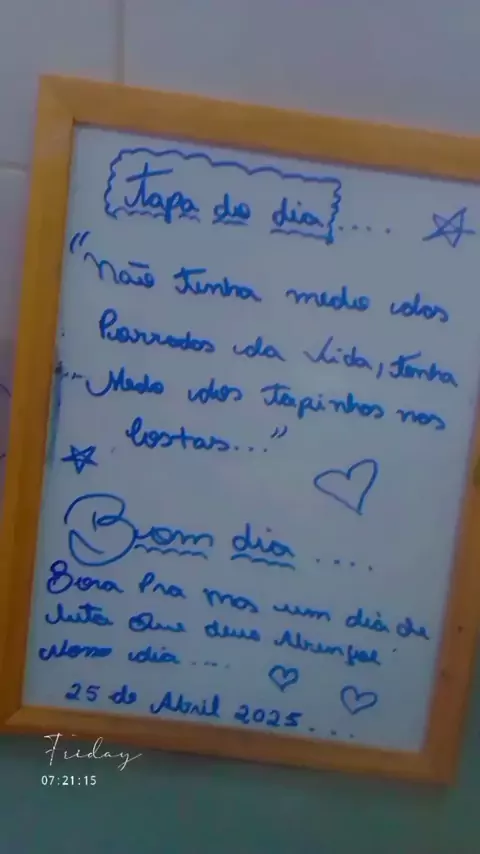 Tapa do dia....
"Não tenha medo das
Porradas da vida, tenha
Medo dos Tapinhos nas
Costas..."
Buom dia....
Bora Pra mas um dia de
luta Que deus Abençoe
Nosso dia....
25 de Abril 2025...
Friday
07:21:15